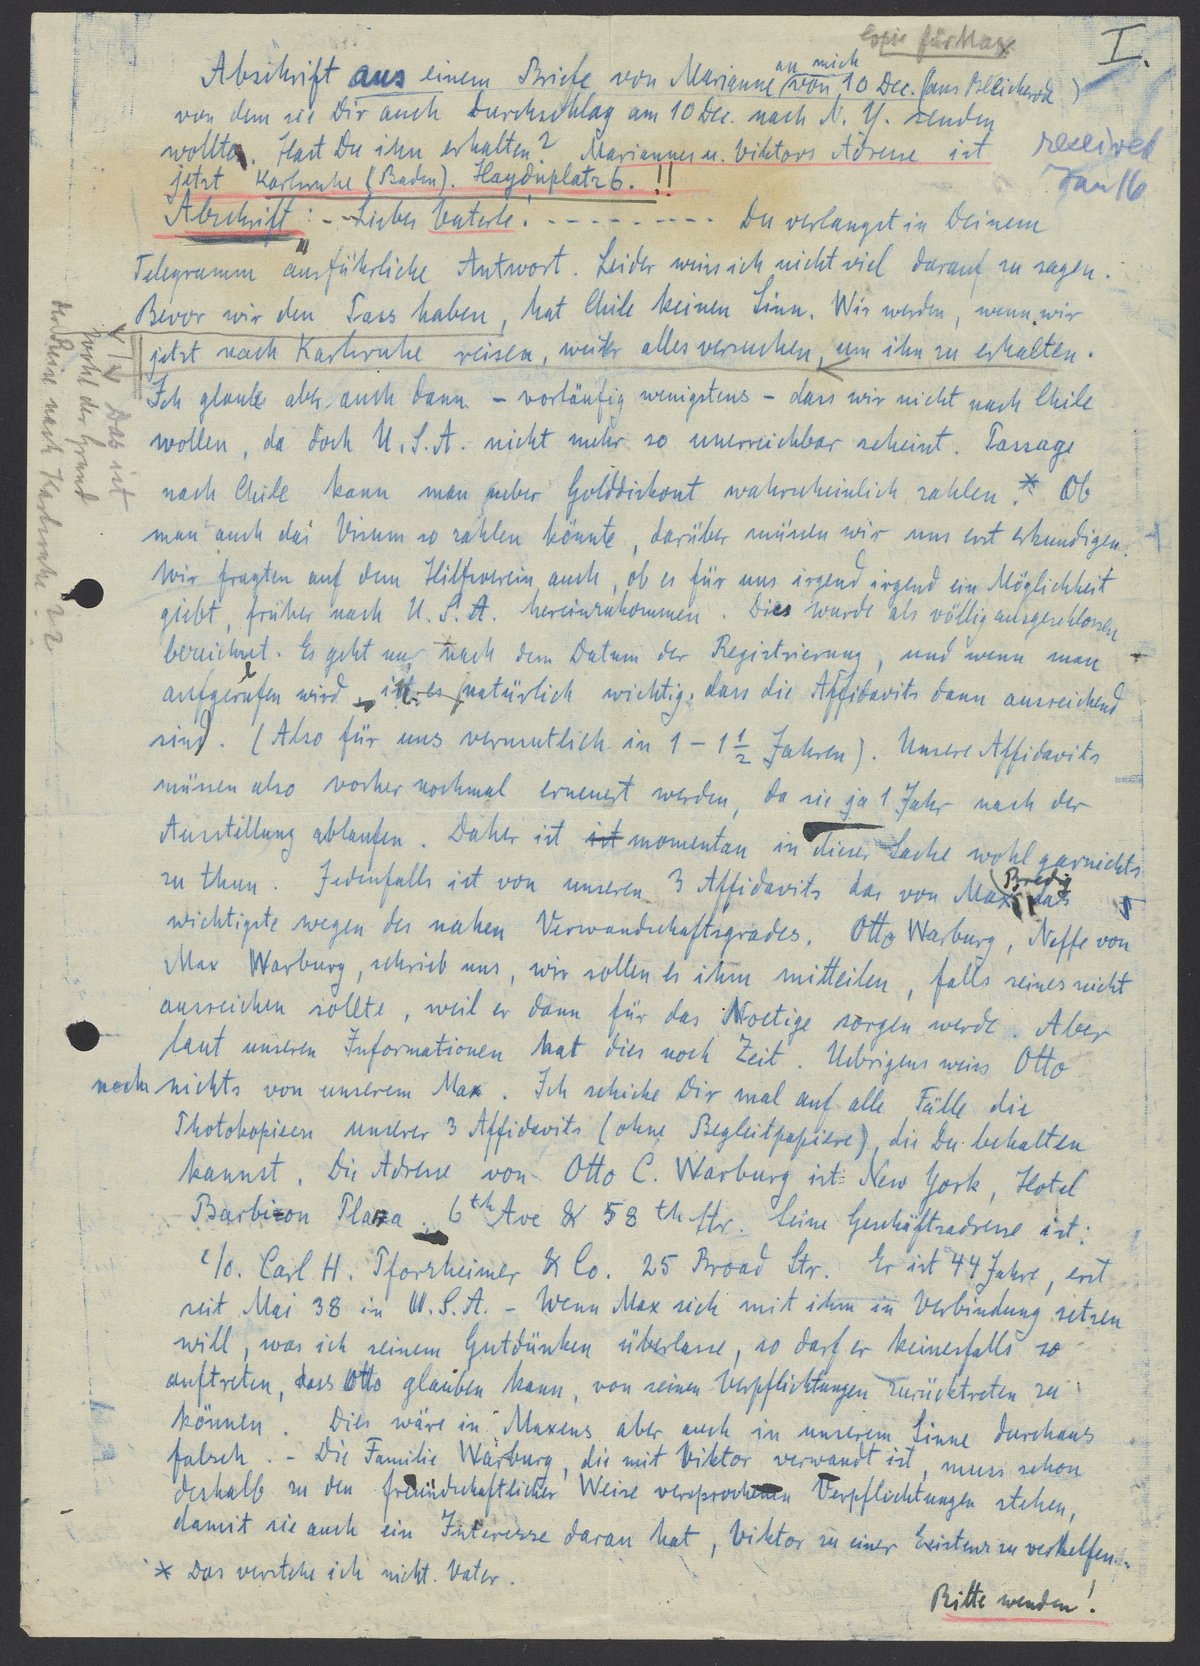 Copie für Max
I.
Abschrift aus einem Briefe von Marianne an mich von 10 Dec. (aus Bleicherode)
von dem sie Dir auch Durchschlag am 10 Dec. nach N. Y. senden
wollte. Hast Du ihn erhalten? Mariannes u. Viktors Adresse ist
jetzt Karlsruhe (Baden). Haydnplatz 6. !!
received
Jan 16
Abschrift: - - Lieber Vaterle. - - - - - - - - - Du verlangst in Deinem
Telegramm ausführliche Antwort. Leider weiss ich nicht viel darauf zu sagen.
Bevor wir den Pass haben, hat Chile keinen Sinn. Wir werden, wenn wir
jetzt nach Karlsruhe reisen, weiter alles versuchen, um ihn zu erhalten.
Das ist
wohl der Grund
der Reise nach Karlsruhe??
Ich glaube abh. auch dann - vorläufig wenigstens - dass wir nicht nach Chile
wollen, da doch U. S. A. nicht mehr so unerreichbar scheint. Passage
nach Chile kann man ueber Golddiskont wahrscheinlich zahlen.* Ob
man auch das Visum so zahlen könnte, darüber müssen wir uns erst erkundigen.
Wir fragten auf dem Hilfsverein auch, ob es für uns irgend irgend ein Möglichkeit
giebt, früher nach U. S. A. hereinzukommen. Dies wurde als völlig ausgeschlossen
bezeichnet. Es geht nur nach dem Datum der Registrierung, und wenn man
aufgerufen wird, ist es natürlich wichtig, dass die Affidavits dann ausreichend
sind. (Also für uns vermutlich in 1 - 1 1/2 Jahren). Unsere Affidavits
müssen also vorher nochmal erneuert werden, da sie ja 1 Jahr nach der
Ausstellung ablaufen. Daher ist ist momentan in dieser Sache wohl garnichts
zu thun. Jedenfalls ist von unseren 3 Affidavits das von Max (Bredig) das
wichtigste wegen des nahen Verwandschaftsgrades. Otto Warburg, Neffe von
Max Warburg, schrieb uns, wir sollen es ihm mitteilen, falls seines nicht
ausreichen sollte, weil er dann für das Noetige sorgen werde. Aber
laut unseren Informationen hat dies noch Zeit. Uebrigens weiss Otto
noch nichts von unserem Max. Ich schicke Dir mal auf alle Fälle die
Photokopieen unserer 3 Affidavits (ohne Begleitpapiere), die Du behalten
kannst. Die Adresse von Otto C. Warburg ist: New York, Hotel
Barbizon Plaza. 6th Ave & 58th Str. Seine Geschäftsadresse ist:
c/o. Carl H. Pforzheimer & Co. 25 Broad Str. Er ist 44 Jahre, erst
seit Mai 38 in U.S.A. - Wenn Max sich mit ihm in Verbindung setzen
will, was ich seinem Gutdünken überlasse, so darf er keinesfalls so
auftreten, dass Otto glauben kann, von seinen Verpflichtungen zurücktreten zu
können. Dies wäre in Maxens aber auch in unserem Sinne durchaus
falsch. - Die Familie Warburg, die mit Viktor verwandt ist, muss schon
deshalb zu den freundschaftlicher Weise versprochenen Verpflichtungen stehen,
damit sie auch ein Interesse daran hat, Viktor zu einer Existenz zu verhelfen.
* Das verstehe ich nicht. Vater.
Bitte wenden!